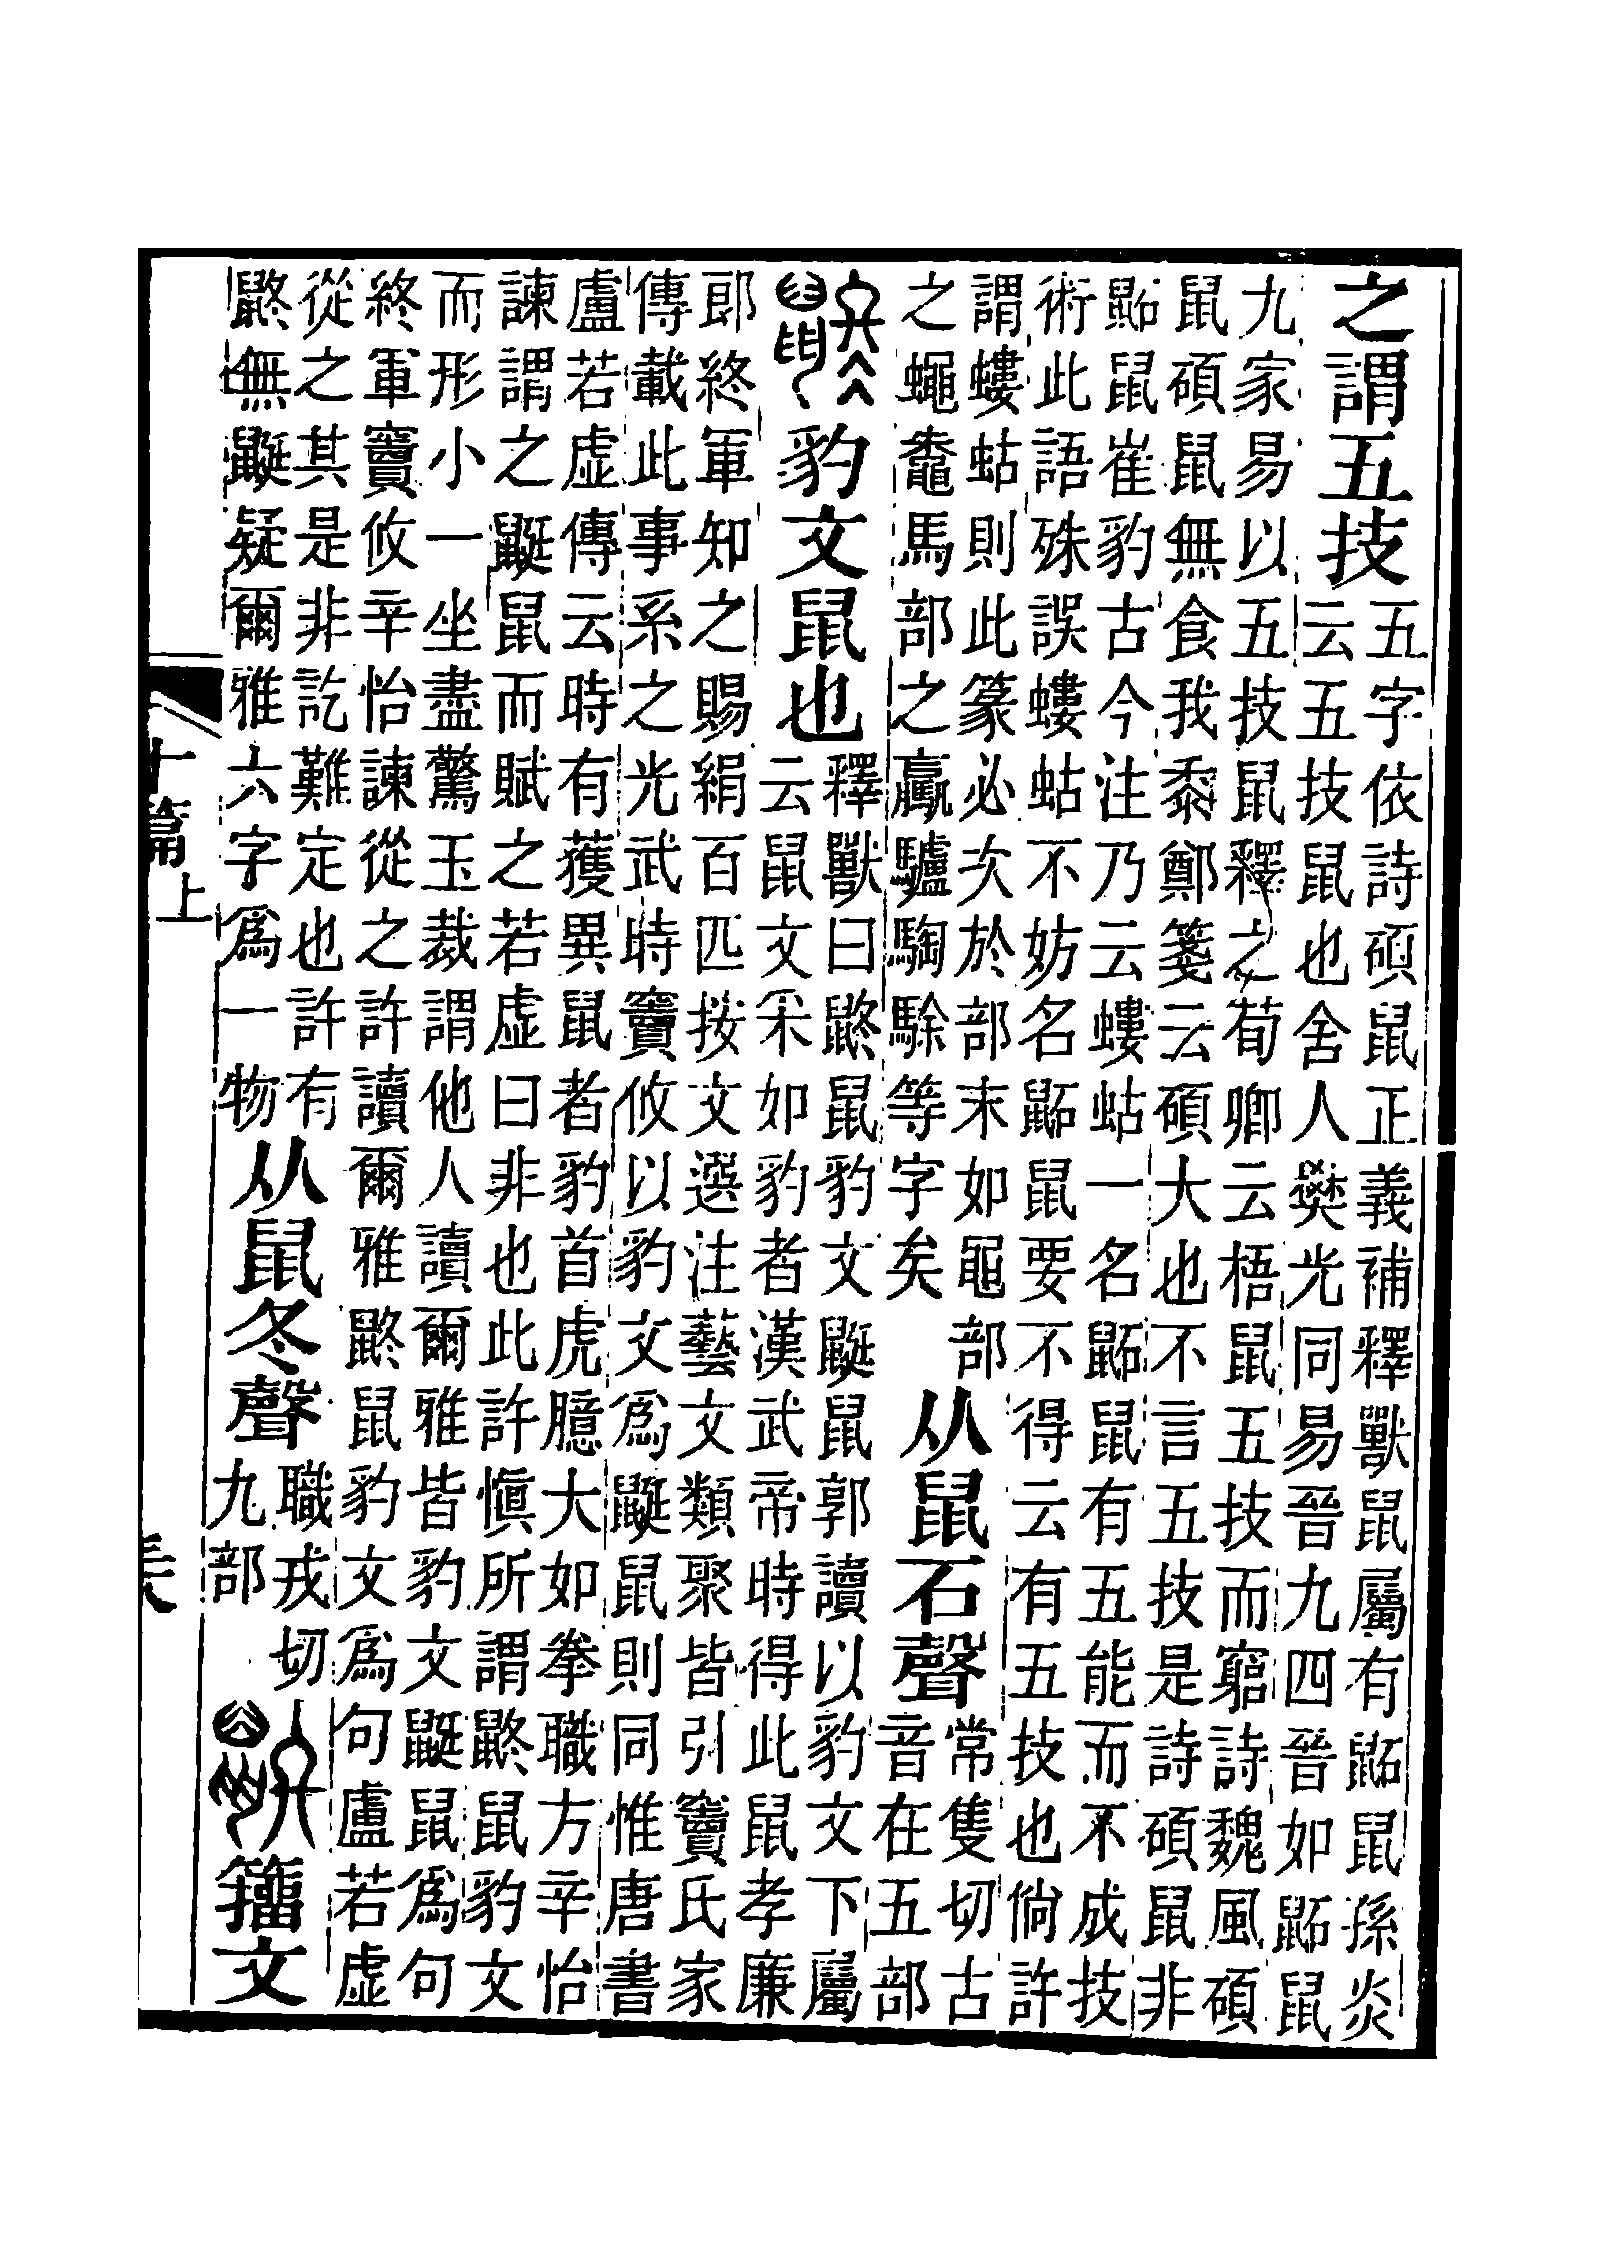 之謂五技五字依詩碩鼠正義補釋獸鼠屬有鼫鼠孫炎
云五技鼠也舍人樊光同易晉九四晉如鼫鼠
九家易以五技鼠釋之荀卿云梧鼠五技而窮詩魏風碩
鼠碩鼠無食我黍鄭箋云碩大也不言五技是詩碩鼠非
鼫鼠崔豹古今注乃云螻蛄一名鼫鼠有五能而不成技
術此語殊誤螻蛄不妨名鼫鼠要不得云有五技也倘許
謂螻蛄則此篆必次於部末如黽部
之蠅馬部之驘驢騊駼等字矣
从鼠石聲常隻切古
音在五部
鼨豹文鼠也釋獸曰鼨鼠豹文鼮鼠郭讀以豹文下屬
云鼠文采如豹者漢武帝時得此鼠孝廉
郎終軍知之賜絹百匹按文選注藝文類聚皆引竇氏家
傳載此事系之光武時竇攸以豹文爲鼮鼠則同惟唐書
盧若虛傳云時有獲異鼠者豹首虎臆大如拳職方辛怡
諫謂之鼮鼠而賦之若虛曰非也此許愼所謂鼨鼠豹文
而形小一坐盡驚玉裁謂他人讀爾雅皆豹文鼮鼠爲句
終軍竇攸辛怡諫從之許讀爾雅鼨鼠豹文爲句盧若虛
從之其是非訖難定也許有
鼨無鼮疑爾雅六字爲一物
从鼠冬聲職戎切
九部
籒文
十篇上